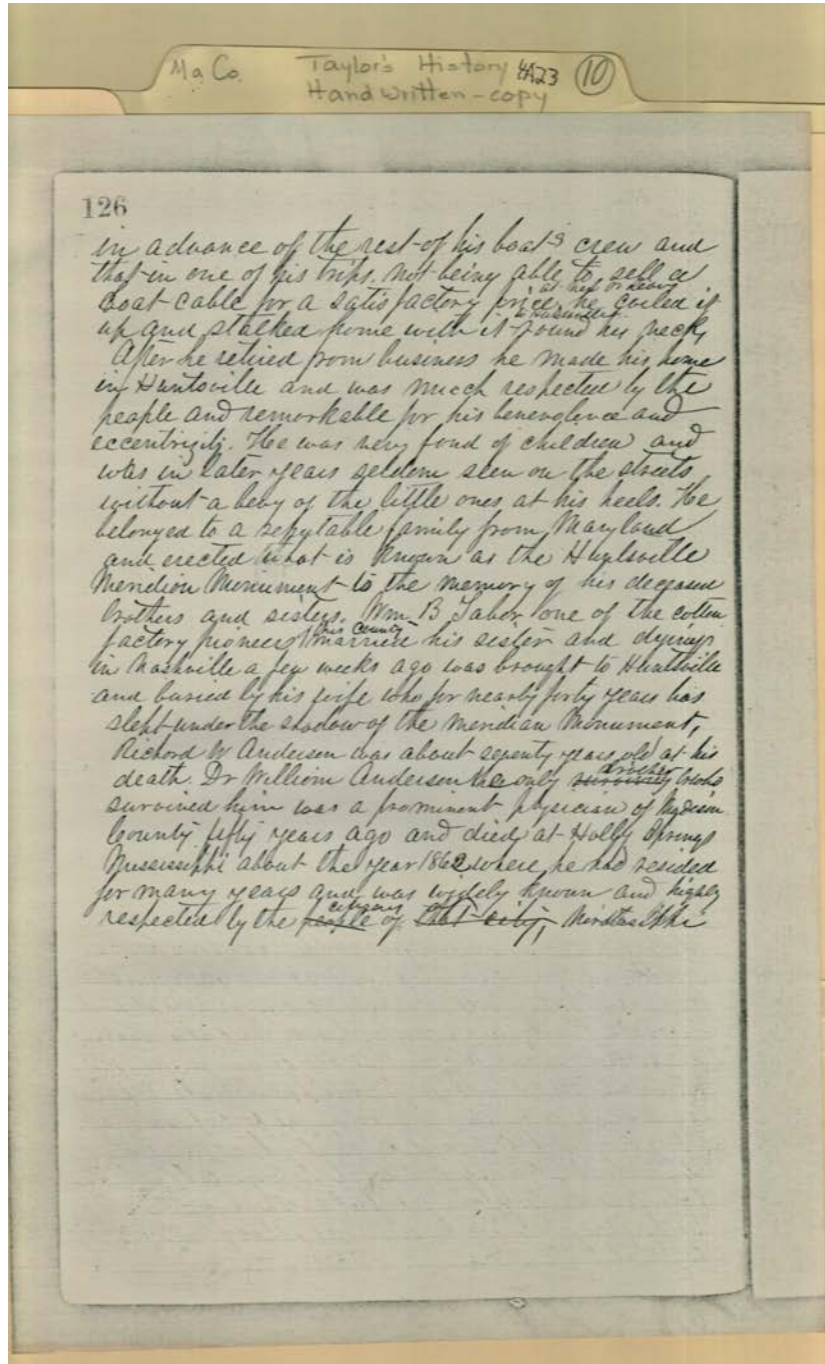 Ma Co. Taylor's History 4A23 10
Handwritten - copy
126
in advance of the rest of his boat's crew and
that in one of his trips, not being able to sell a
at New Orleans
boat cable for a satisfactory price, he coiled it
up and stalked home with it round his neck,
After he retired from business he made his home
in Huntsville and was much respected by the
people and remarkable for his benevolence and
eccentricity. He was very fond of children and
was in later years seldom seen on the streets
without a bevy of the little ones at his heels. He
belonged to a reputable family from Maryland
and erected what is known as the Huntsville
Meridian Monument to the memory of his deceased
brothers and sisters. Wm. B Tabor one of the cotton
this County
factory pioneers married his sister and dying
in Nashville a few weeks ago was brought to Huntsville
and buried by his wife who for nearly forty years has
slept under the shadow of the Meridian Monument,
Richard W Anderson was about seventy years old at his
brother
death. Dr William Anderson the only who
survived him was a prominent physician of Madison
County fifty years ago and died at Holly Springs
Mississippi about the year 1862 where he had resided
for many years and was widely known and highly
citizens
respected by the people of that city,